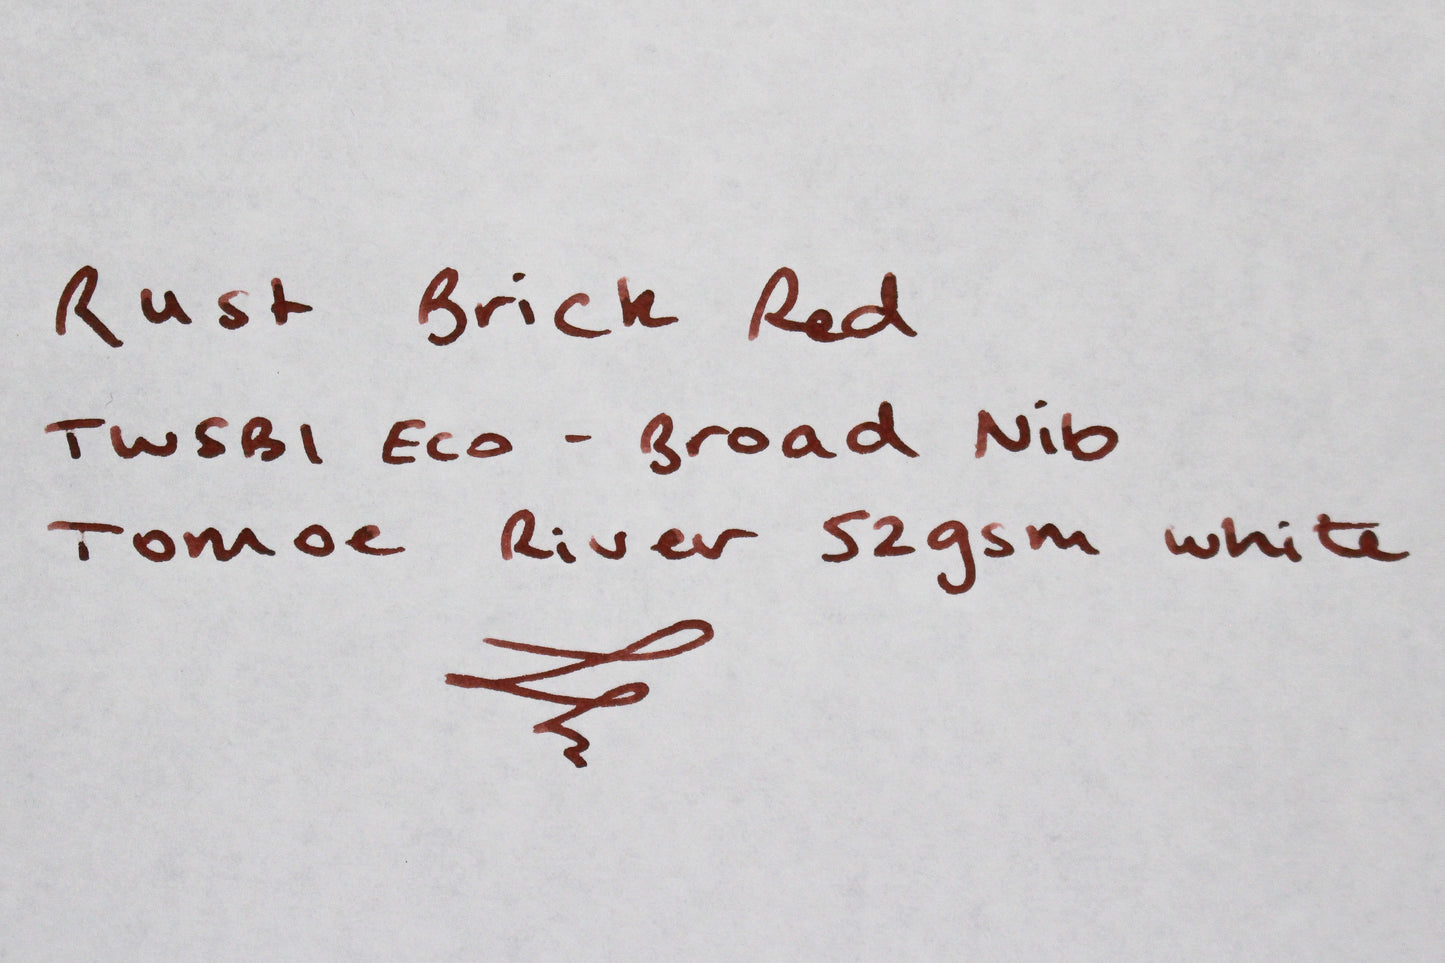 Rust Brick Red
TWSBI Eco - Broad Nib
Tomoe River 52gsm white